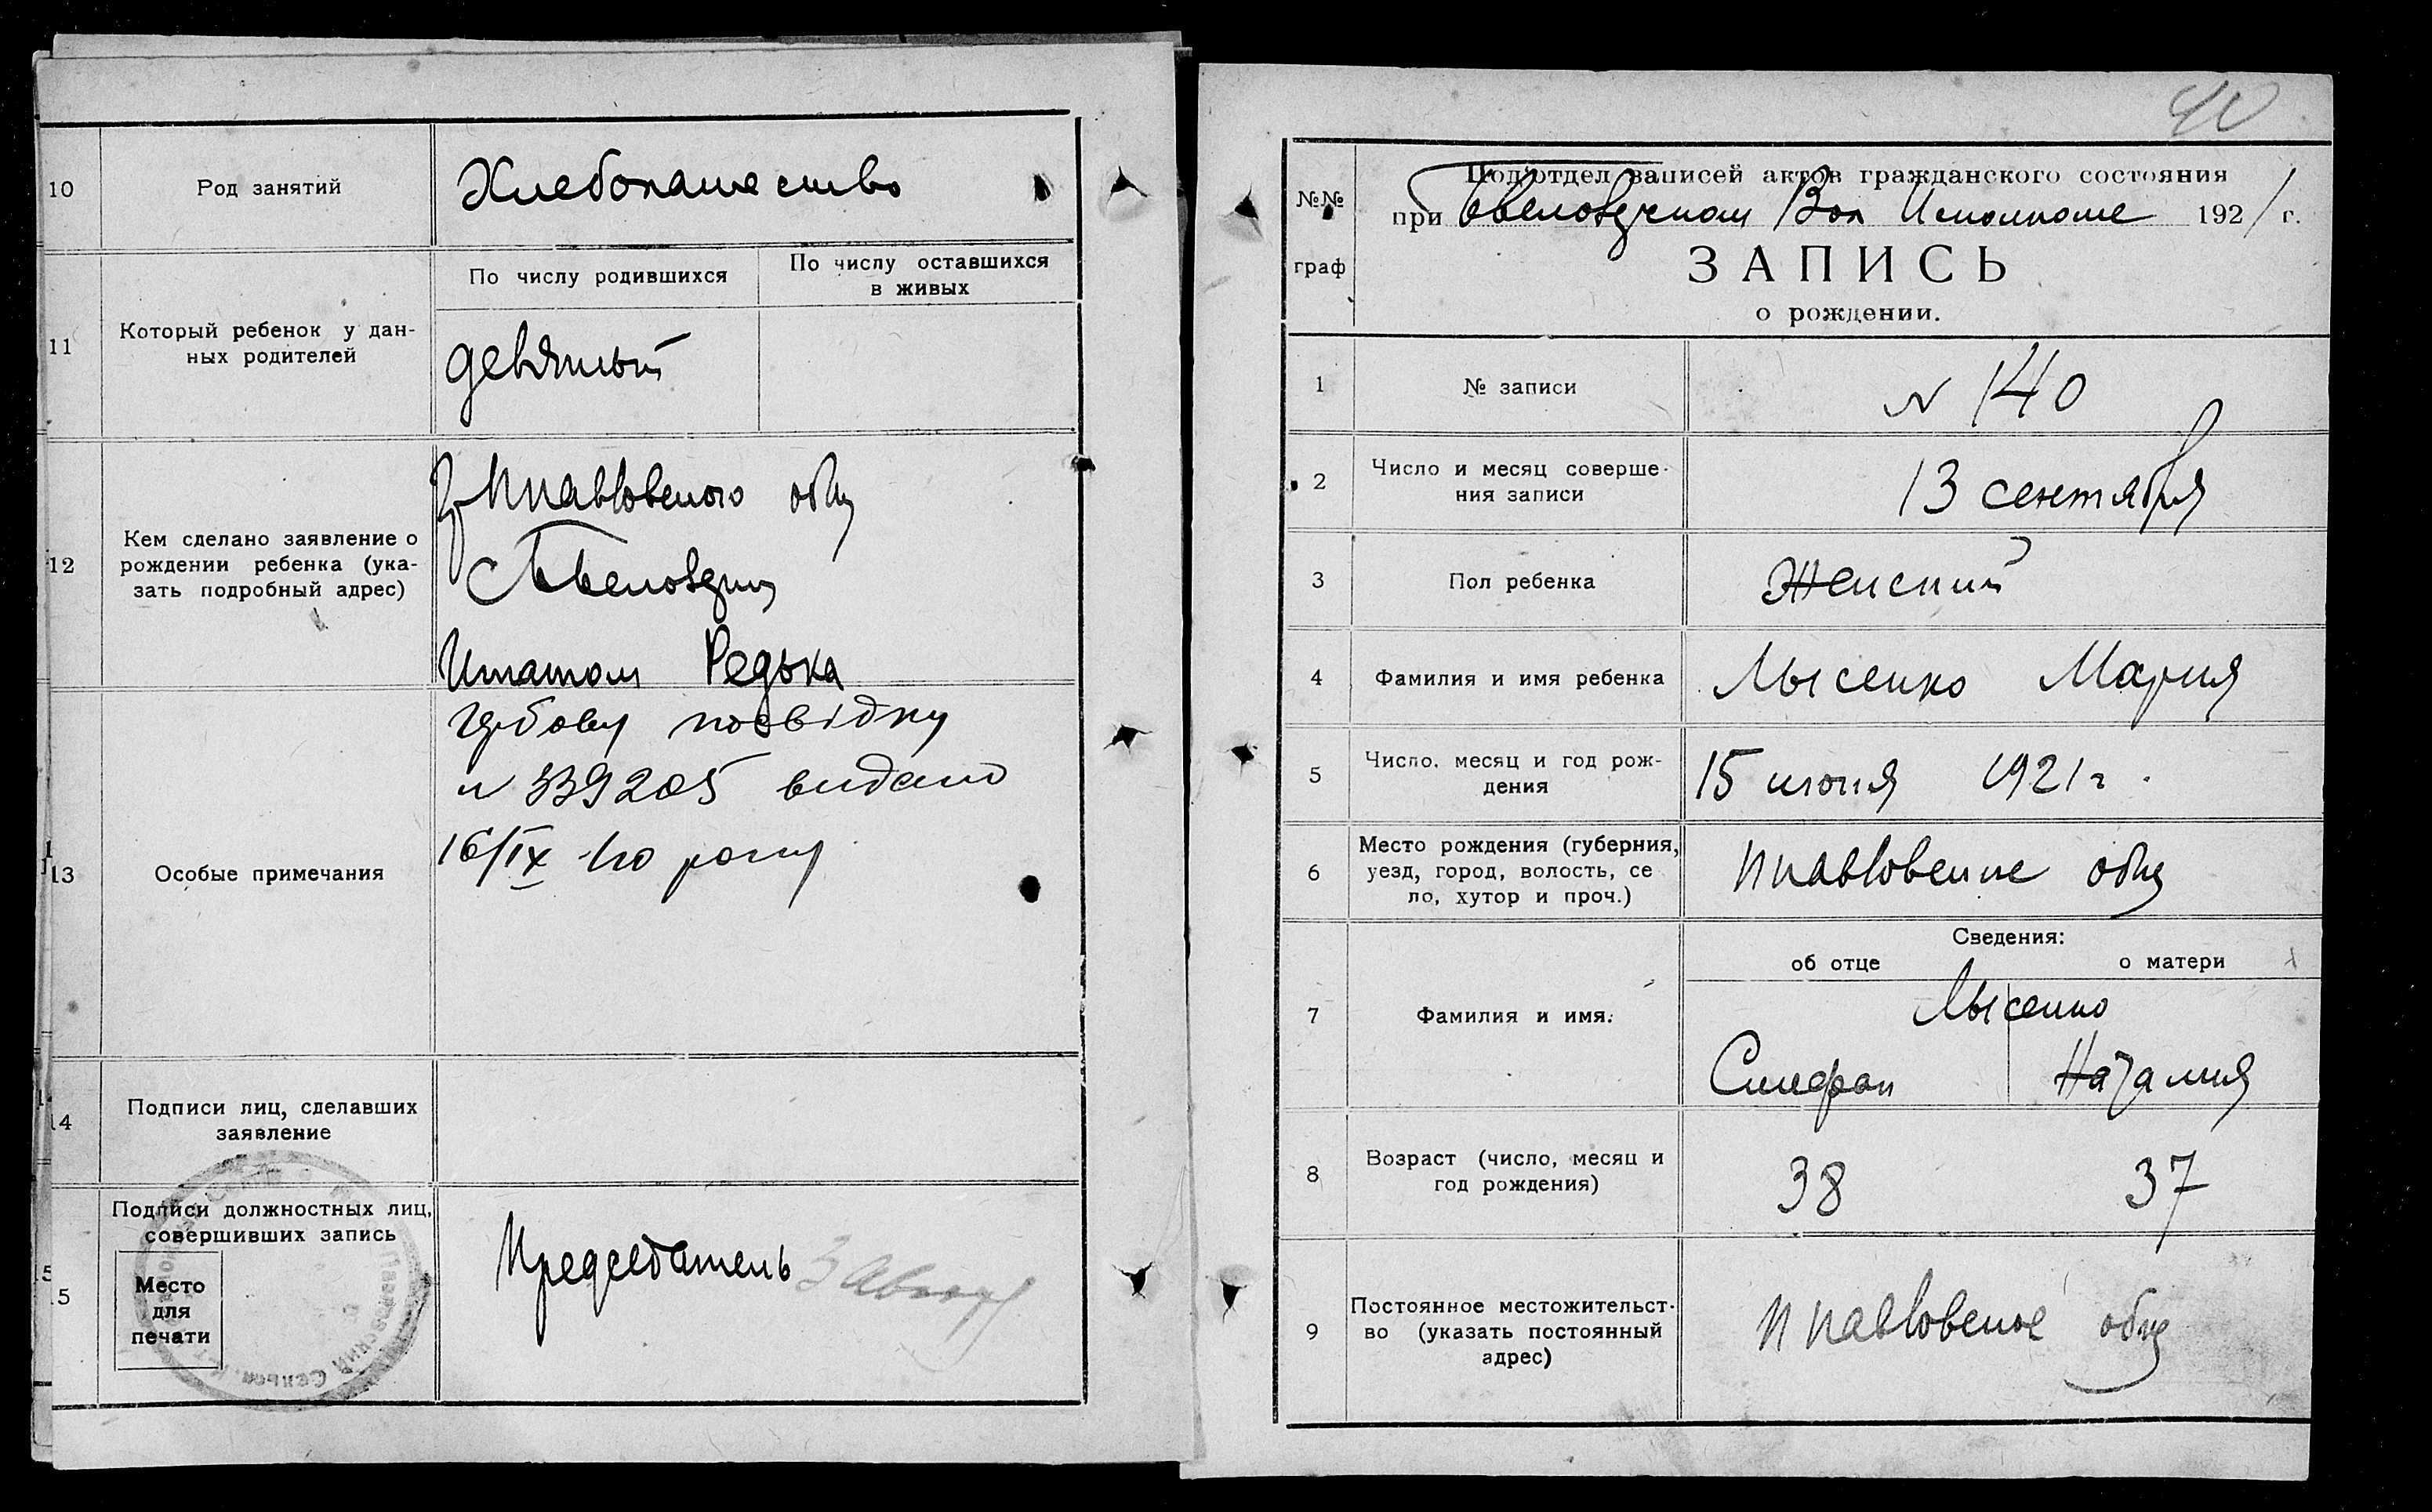 10
Род занятий
Хлебопашество
11
Который ребенок у дан-
ных родителей
По числу родившихся
По числу оставшихся
в живых
девятый
12
Кем сделано заявление о
рождении ребенка (ука-
зать подробный адрес)
общ
Редька
13
Особые примечания
гербову посвідку
№ 339205 видано
16/IX року
14
Подписи лиц, сделавших
заявление
15
Подписи должностных лиц,
совершивших запись
Место
для
печати
Председатель
40
№№
граф
Подотдел записей актов гражданского состояния
при Вол Исполкоме 1921 г.
ЗАПИСЬ
о рождении.
1
№ записи
№ 140
2
Число и месяц соверше-
ния записи
13 сентября
3
Пол ребенка
Женский
4
Фамилия и имя ребенка
Лысенко Мария
5
Число, месяц и год рож-
дения
15 июня 1921 г.
6
Место рождения (губерния,
уезд, город, волость, се
ло, хутор и проч.)
общ
Сведения:
об отце
о матери
7
Фамилия и имя.
Лысенко
Стефан
Наталия
8
Возраст (число, месяц и
год рождения)
38
37
9
Постоянное местожительст-
во (указать постоянный
адрес)
общ